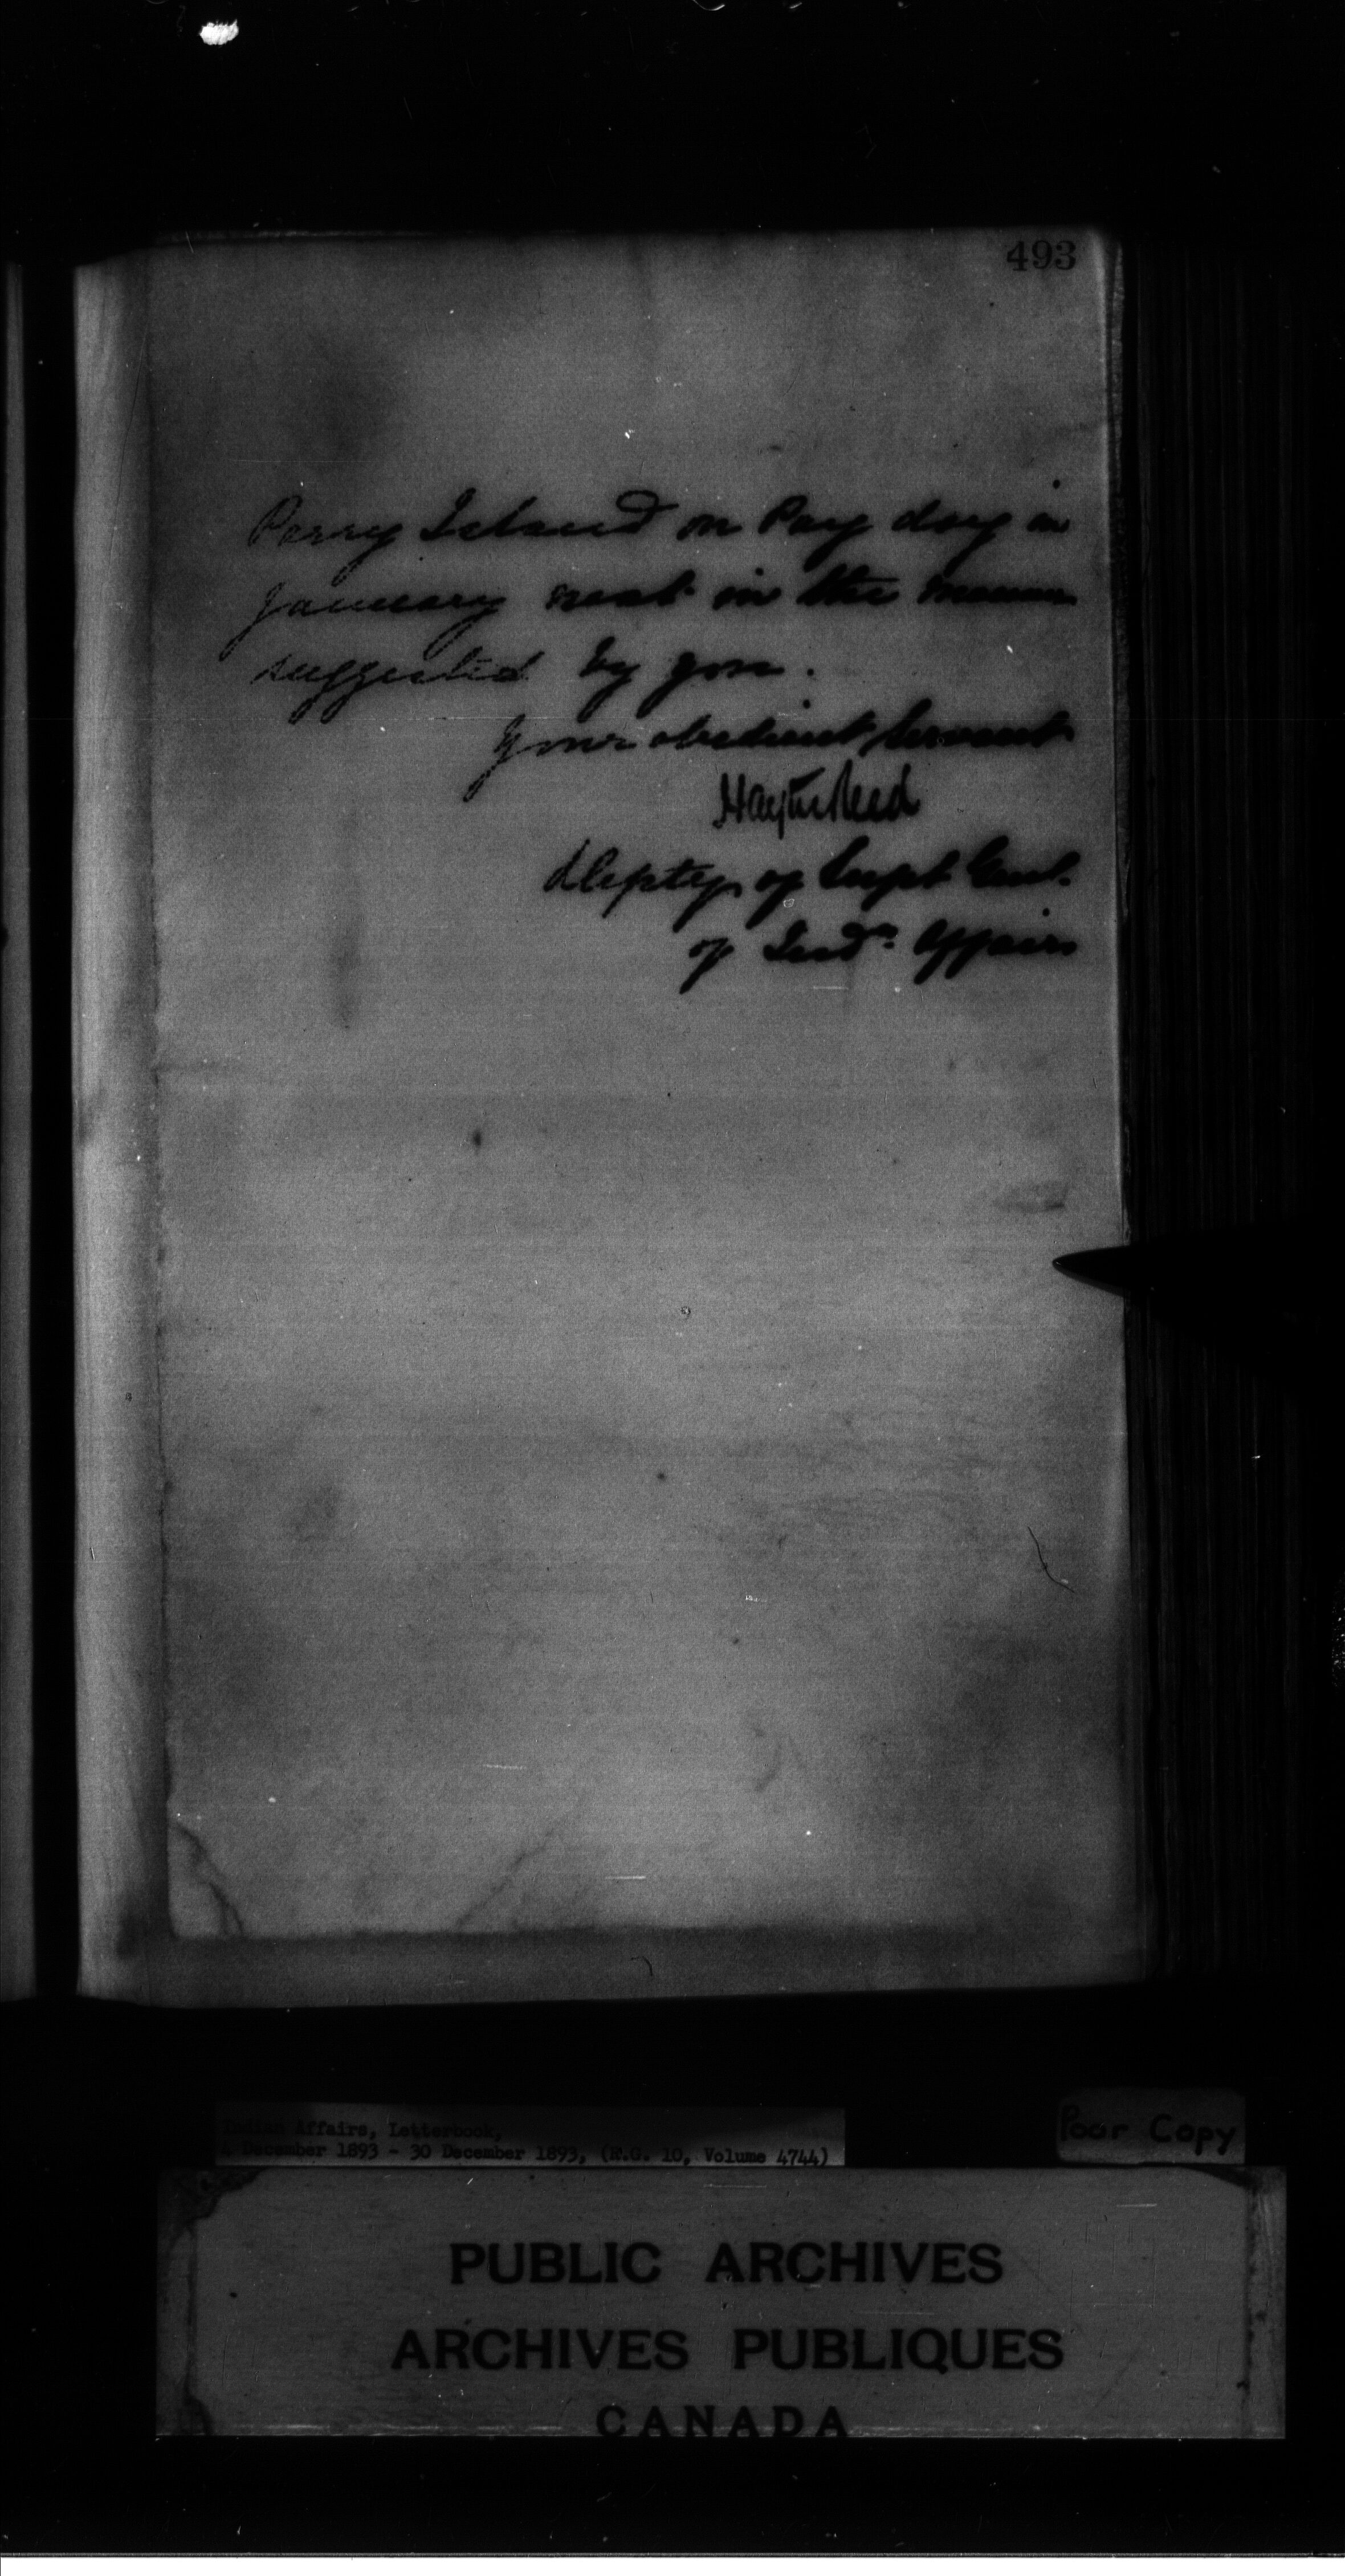 493
Parry Island on Pay day in
January next in the manner
suggested by you.
Your obedient Servant
Hayter Reed
Deputy of Supt Genl.
of Indn. Affairs
Indian Affairs, Letterbook,
4 December 1893 - 30 December 1893, (R.G. 10, Volume 4744)
Poor Copy
PUBLIC ARCHIVES
ARCHIVES PUBLIQUES
CANADA